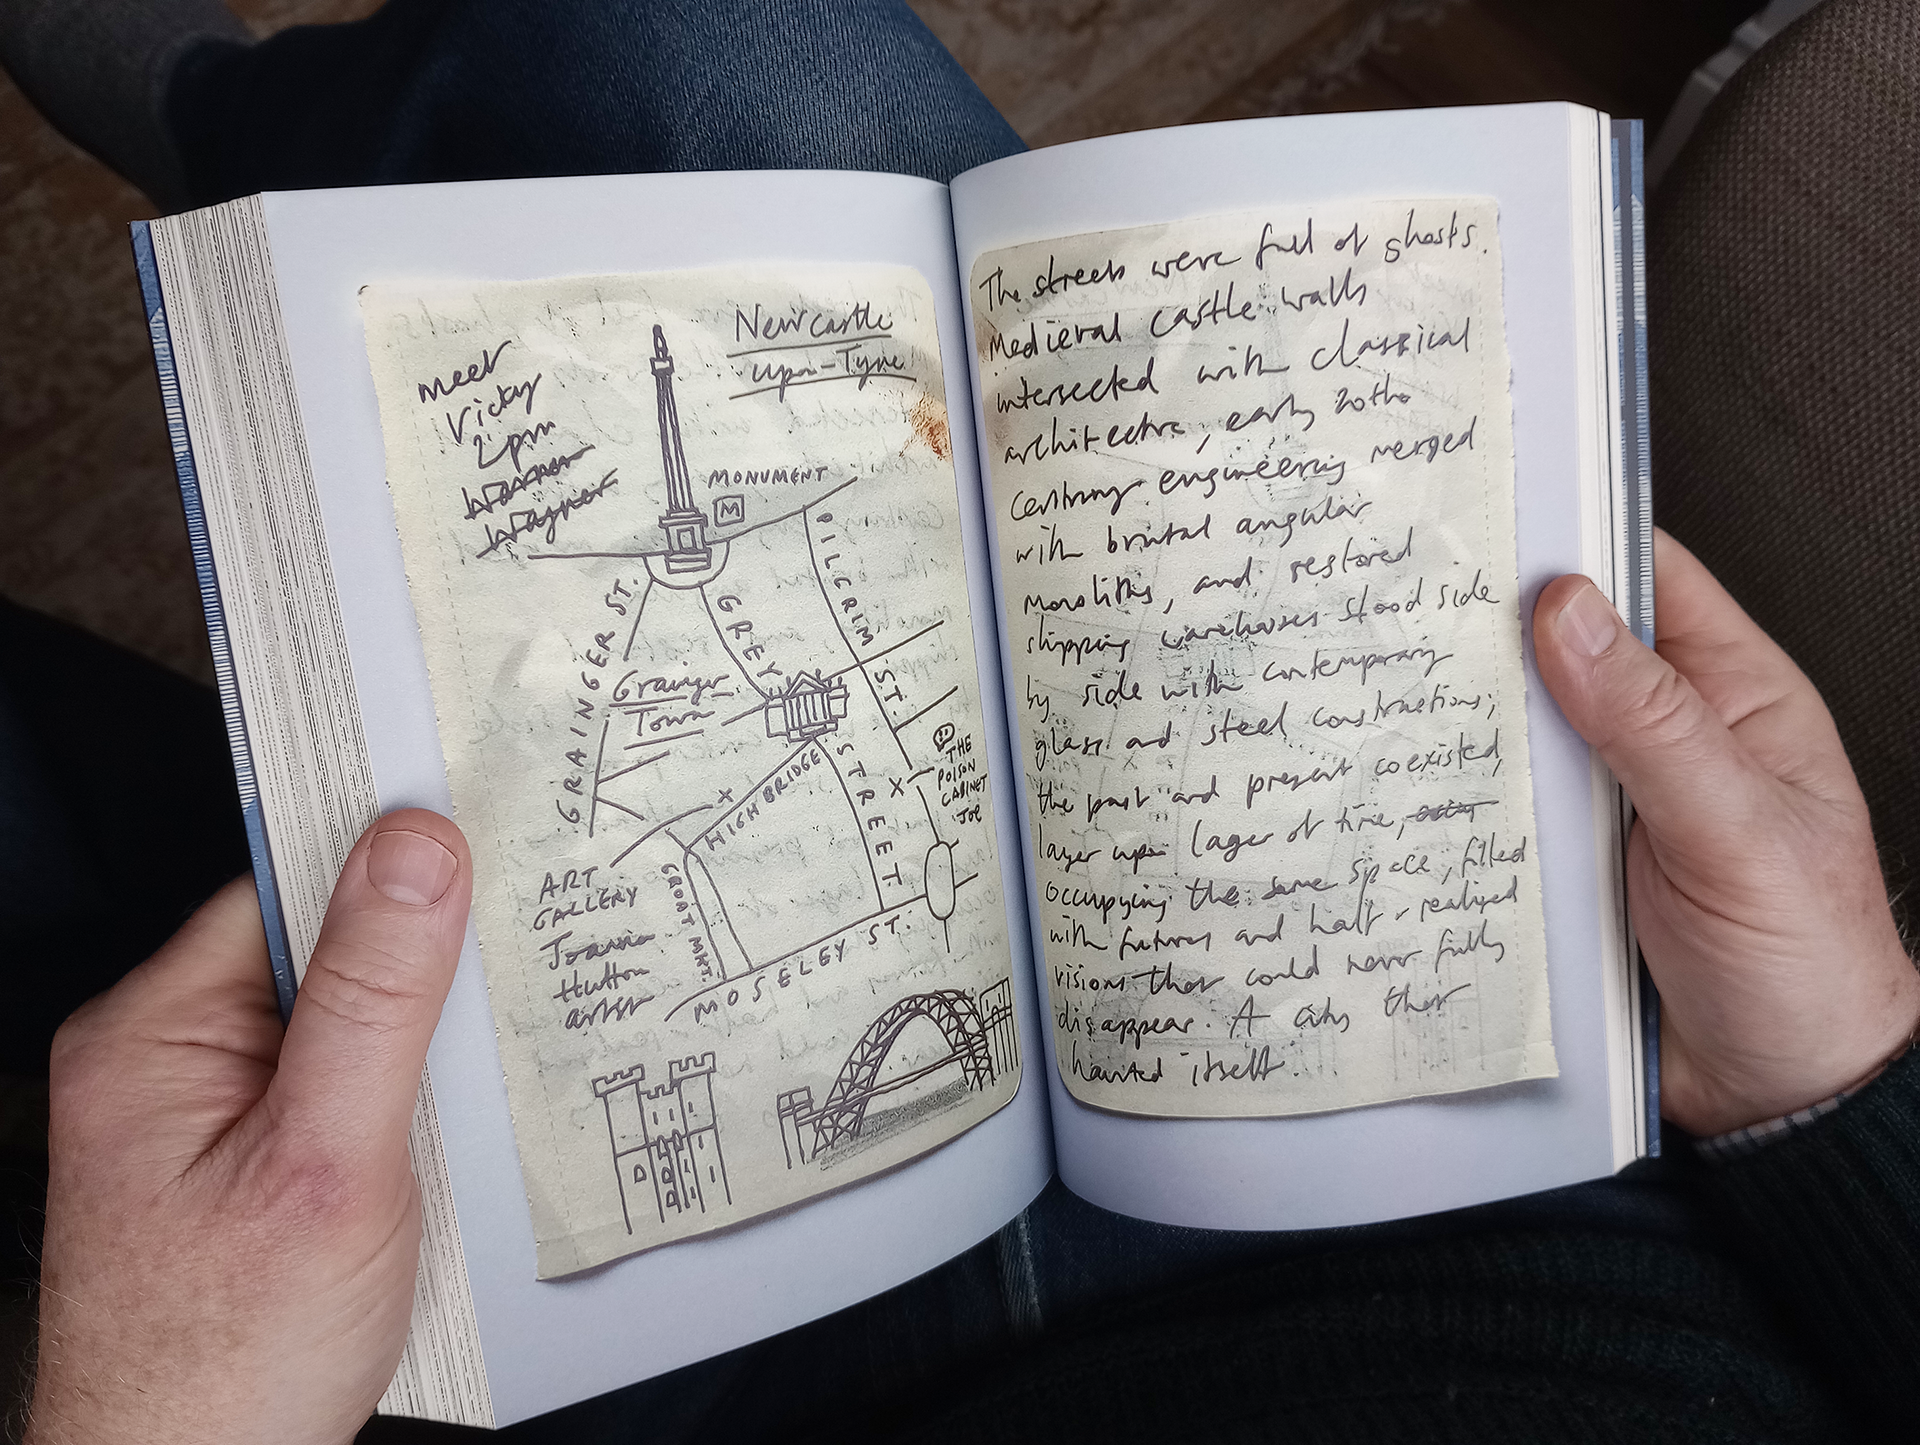 Newcastle
upon-Tyne!
meet
Vicky
2pm
Warner
Wagner
MONUMENT
M
PILGRIM ST.
GRAINGER ST.
GREY STREET
Grainger
Town
HIGH BRIDGE
X
X
THE
POISON
CABINET
Joe
GROAT MKT.
MOSELEY ST.
ART
GALLERY
Joanna
Hutton
artist
The streets were full of ghosts.
Medieval castle walls
intersected with classical
architecture, early 20th
century engineering merged
with brutal angular
monoliths, and restored
shipping warehouses stood side
by side with contemporary
glass and steel constructions;
the past and present coexisted,
layer upon layer of time,
occupying the same space, filled
with futures and half-realised
visions that could never fully
disappear. A city that
haunted itself.